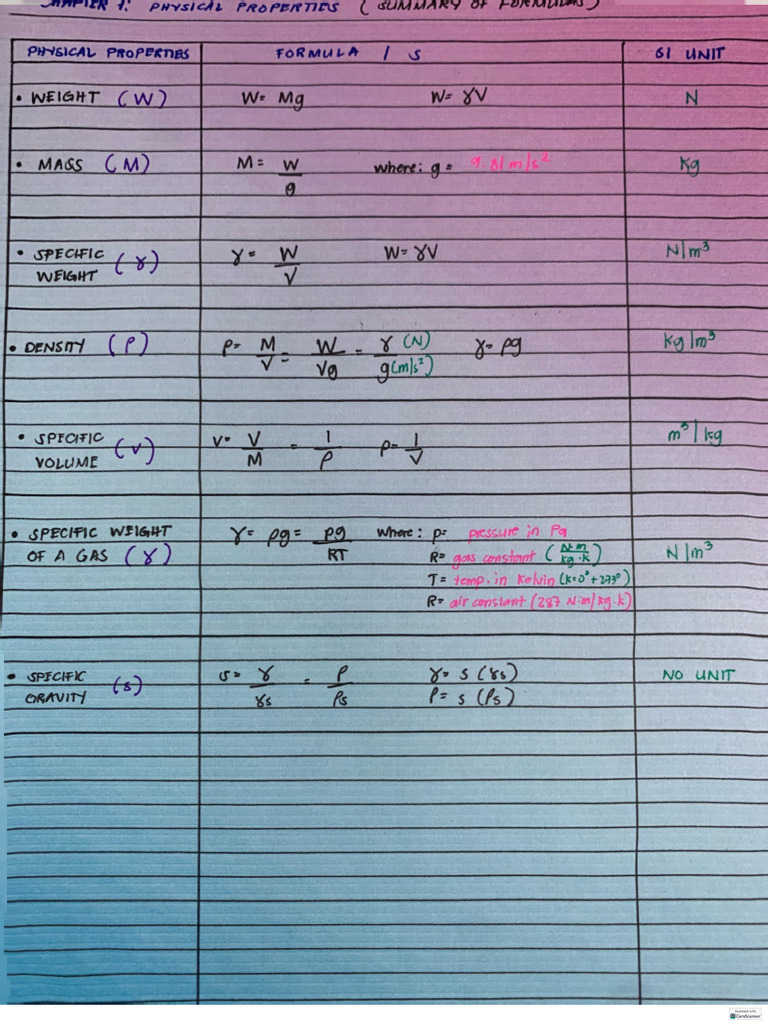 CHAPTER 1: PHYSICAL PROPERTIES (SUMMARY OF FORMULAS)
PHYSICAL PROPERTIES FORMULA / S SI UNIT
• WEIGHT (W) W= Mg W= γV N
• MASS (M) M= W/g where: g= 9.81 m/s² Kg
• SPECIFIC WEIGHT (γ) γ= W/V W= γV N/m³
• DENSITY (ρ) ρ= M/V = W/Vg = γ (N)/g(m/s²) γ= ρg Kg/m³
• SPECIFIC VOLUME (V) V= V/M = 1/ρ ρ= 1/V m³/kg
• SPECIFIC WEIGHT OF A GAS (γ) γ= ρg= pg/RT where: p= pressure in Pa N/m³
R= gas constant (N·m/kg·k)
T= temp. in Kelvin (K=0°+273°)
R= air constant (287 N·m/kg·k)
• SPECIFIC GRAVITY (s) s= γ/γs = ρ/ρs γ= s (γs) NO UNIT
ρ= s (ρs)
Scanned with
CamScanner